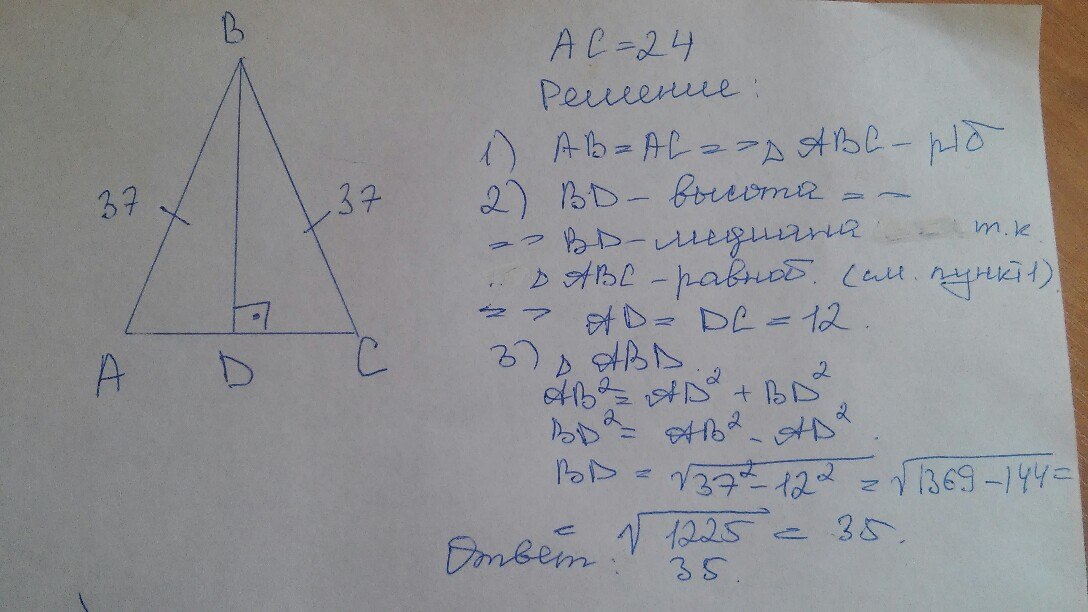 B
37
37
A
D
C
AC = 24
Решение:
1) AB = AC => △ ABC - р/б
2) BD - высота = -
=> BD - медиана т.к.
△ ABC - равноб. (см. пункт 1)
=> AD = DC = 12.
3) △ ABD.
AB² = AD² + BD²
BD² = AB² - AD².
BD = √37² - 12² = √1369 - 144 =
= √1225 = 35.
Ответ: 35.